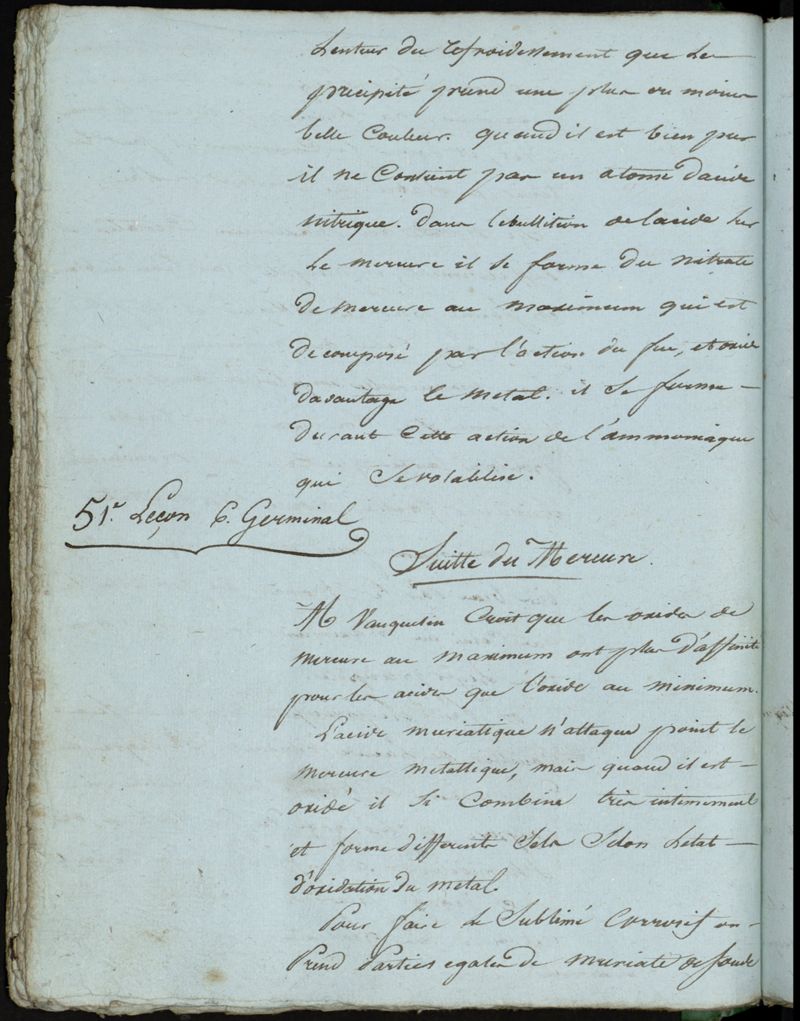 Lenteur du refroidissement que Le
précipité prend une plus ou moins
belle Couleur. quand il est bien pur
il ne Contient pas un atome dacide
nitrique. dans lebullition de lacide sur
Le mercure il se forme du nitrate
de mercure au maximum qui est
decomposé par l'action du feu, et oxide
davantage le metal. il se forme
durant Cette action de l'ammoniaque
que Se volatilise.
51e Leçon 6. Germinal
Suitte du Mercure.
M Vauquelin Croit que les oxides de
mercure au maximum ont plus d'affinité
pour les acides que l'oxide au minimum.
L'acide muriatique n'attaque point le
mercure metallique, mais quand il est
oxidé il si Combine très intimement
et forme differents Sels Selon Letat
d'oxidation du metal.
Pour faire de Sublimé Corrosif on
Prend Parties egales de muriate de Soude